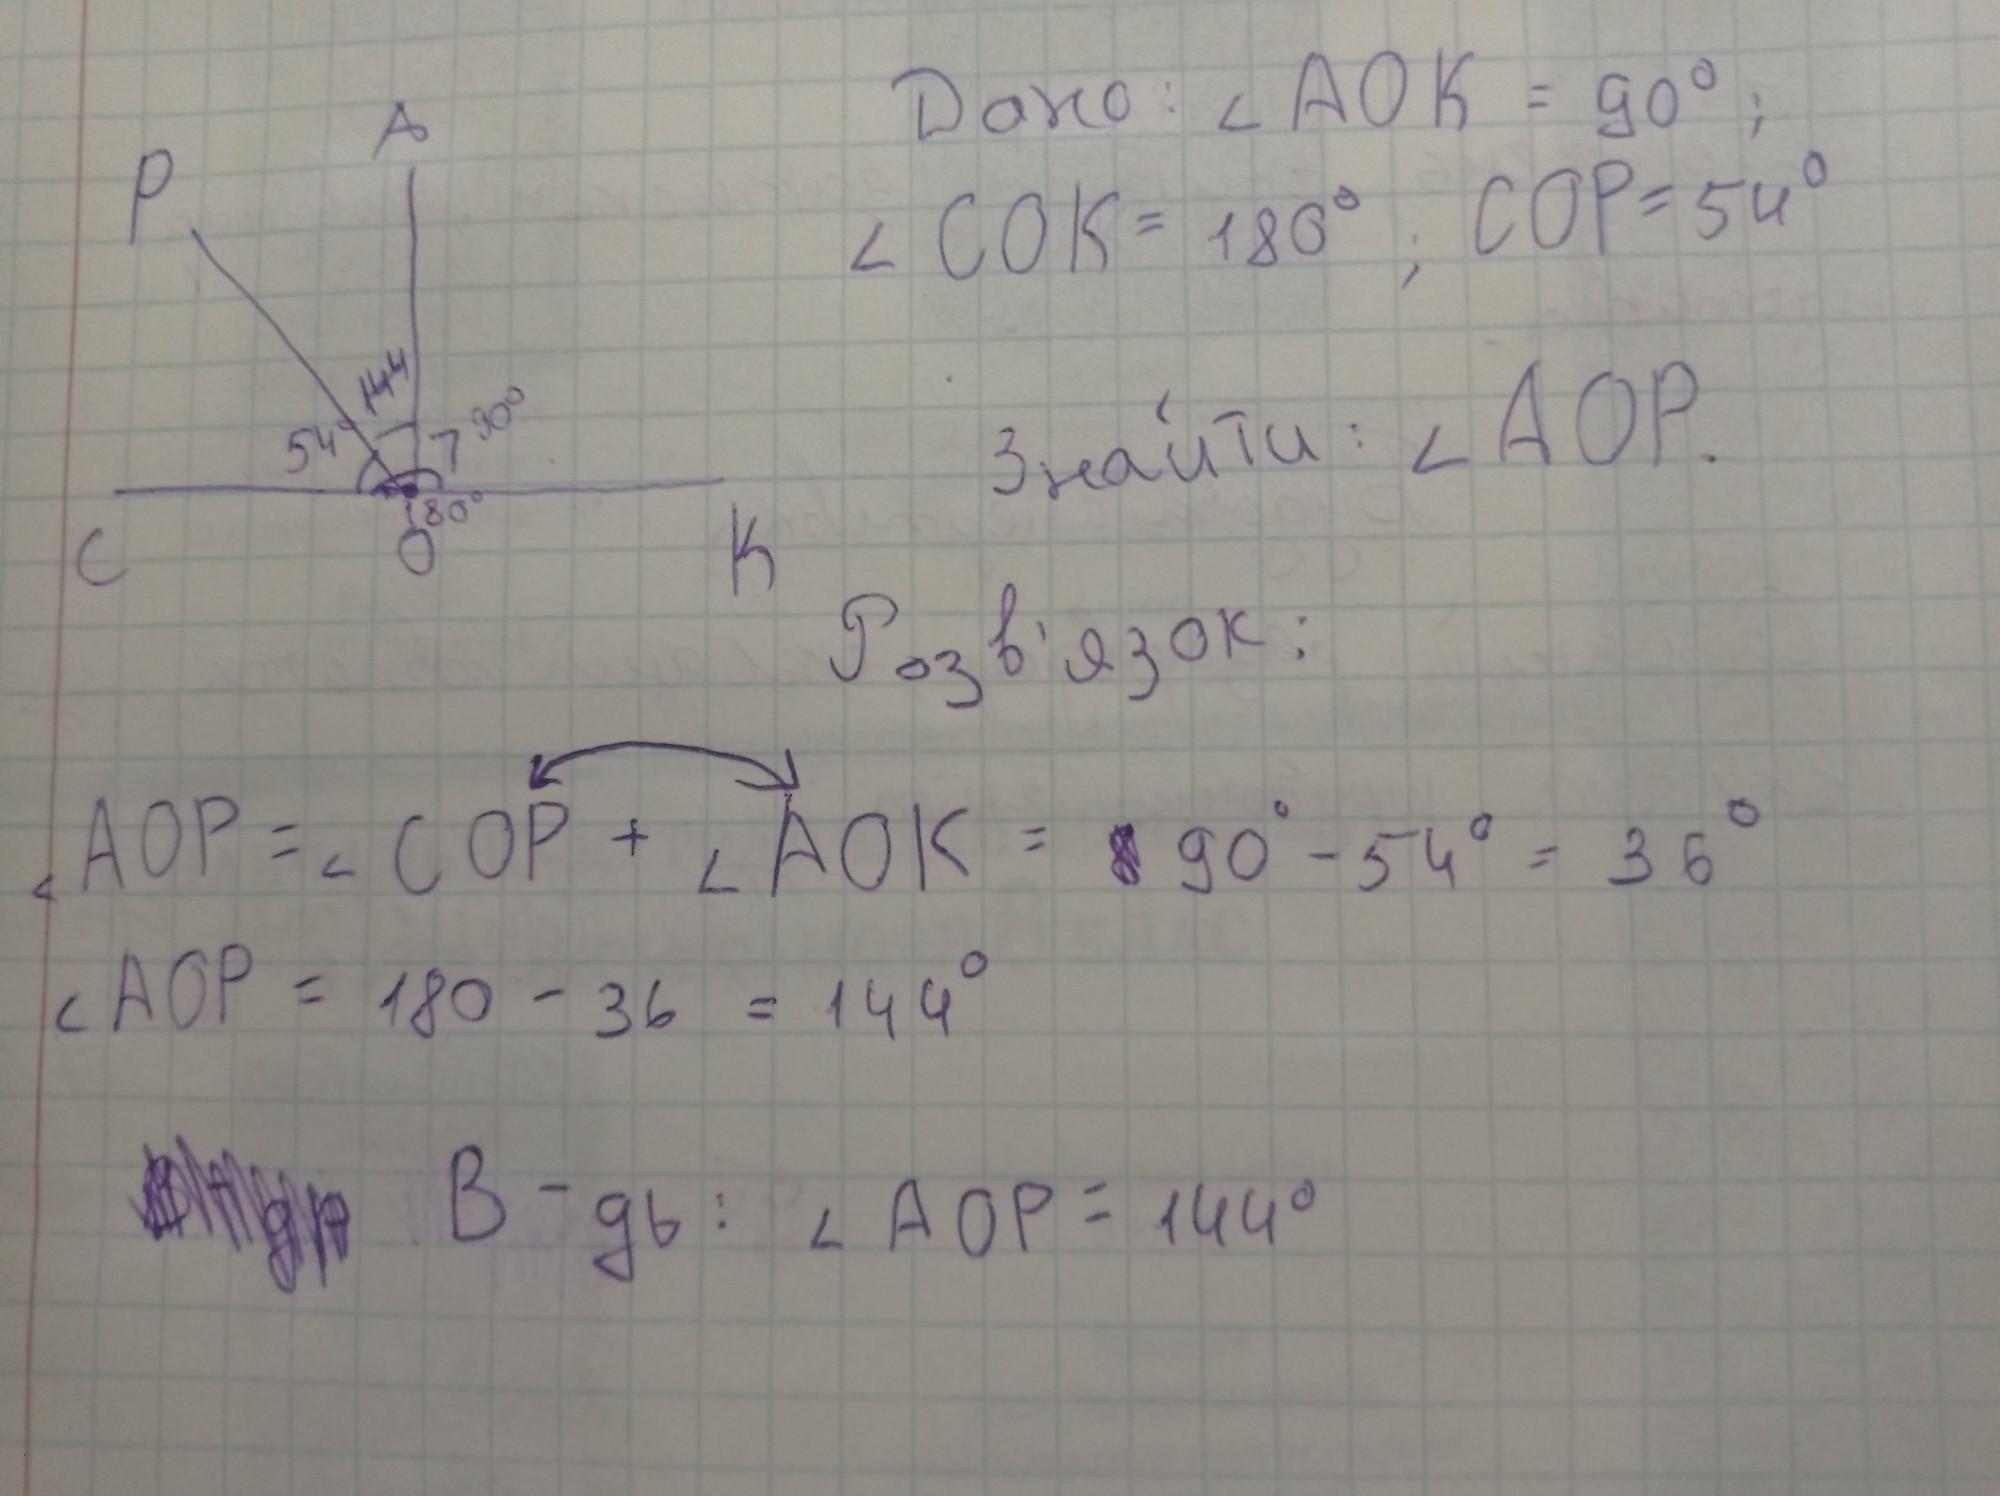 P
A
144
54°
90°
180°
C
O
K
Дано: ∠AOK = 90°;
∠COK = 180°; COP = 54°
Знайти: ∠AOP.
Розв'язок:
∠AOP = ∠COP + ∠AOK = 90° - 54° = 36°
∠AOP = 180 - 36 = 144°
В-дь: ∠AOP = 144°